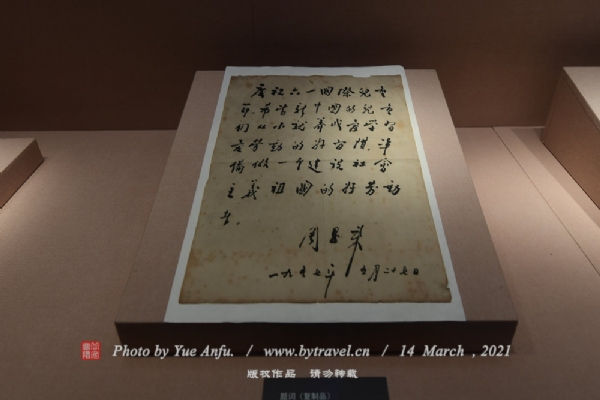 庆祝六一國際兒童
节,希望新中國的兒童
们从小就养成爱学習
爱劳动的好習慣,準
備做一个建设社會
主義祖國的好劳动
者。
周恩来
一九五七年 五月二十七日
Photo by Yue Anfu. / www.bytravel.cn / 14 March , 2021
版权作品 请勿转载
题词（复制品）